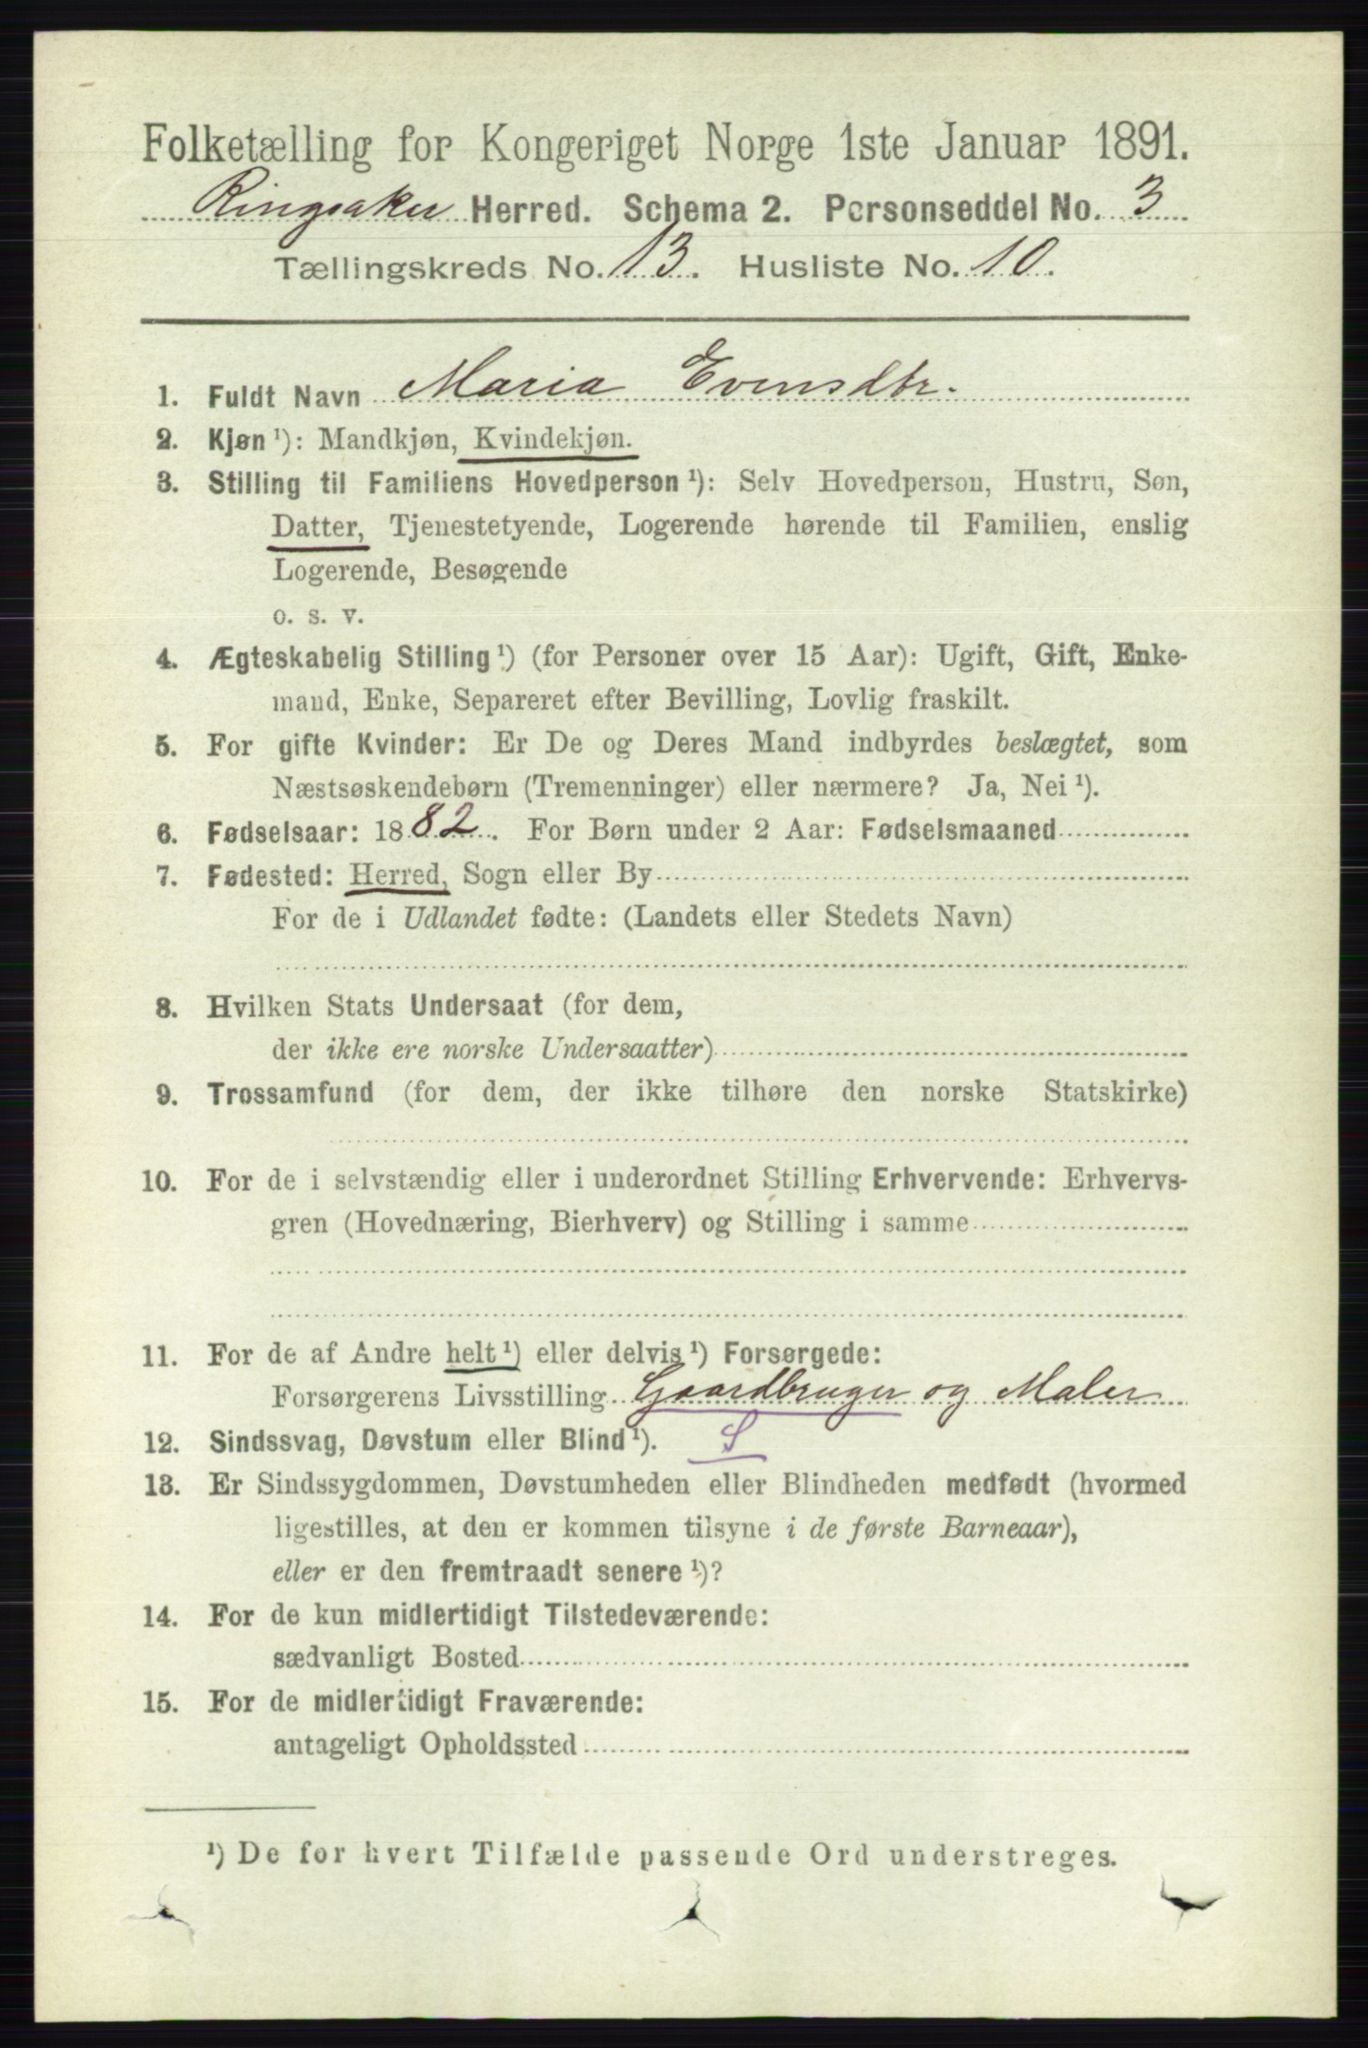 Folketælling for Kongeriget Norge 1ste Januar 1891.
Ringsaker Herred. Schema 2. Personseddel No. 3
Tællingskreds No. 13. Husliste No. 10.
1. Fuldt Navn Maria Evensdtr.
2. Kjøn ¹): Mandkjøn, Kvindekjøn.
3. Stilling til Familiens Hovedperson ¹): Selv Hovedperson, Hustru, Søn,
Datter, Tjenestetyende, Logerende hørende til Familien, enslig
Logerende, Besøgende
o. s. v.
4. Ægteskabelig Stilling ¹) (for Personer over 15 Aar): Ugift, Gift, Enke-
mand, Enke, Separeret efter Bevilling, Lovlig fraskilt.
5. For gifte Kvinder: Er De og Deres Mand indbyrdes beslægtet, som
Næstsøskendebørn (Tremenninger) eller nærmere? Ja, Nei ¹).
6. Fødselsaar: 1882. For Børn under 2 Aar: Fødselsmaaned
7. Fødested: Herred, Sogn eller By
For de i Udlandet fødte: (Landets eller Stedets Navn)
8. Hvilken Stats Undersaat (for dem,
der ikke ere norske Undersaatter)
9. Trossamfund (for dem, der ikke tilhøre den norske Statskirke)
10. For de i selvstændig eller i underordnet Stilling Erhvervende: Erhvervs-
gren (Hovednæring, Bierhverv) og Stilling i samme
11. For de af Andre helt ¹) eller delvis ¹) Forsørgede:
Forsørgerens Livsstilling Gaardbruger og Maler
12. Sindssvag, Døvstum eller Blind ¹). S
13. Er Sindssygdommen, Døvstumheden eller Blindheden medfødt (hvormed
ligestilles, at den er kommen tilsyne i de første Barneaar),
eller er den fremtraadt senere ¹)?
14. For de kun midlertidigt Tilstedeværende:
sædvanligt Bosted
15. For de midlertidigt Fraværende:
antageligt Opholdssted
¹) De for hvert Tilfælde passende Ord understreges.